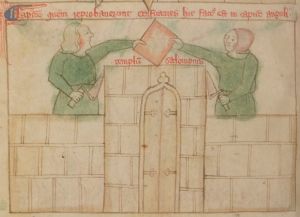 Lapidem quem reprobaverunt edificantes hic factus est in caput anguli
templum Salomonis